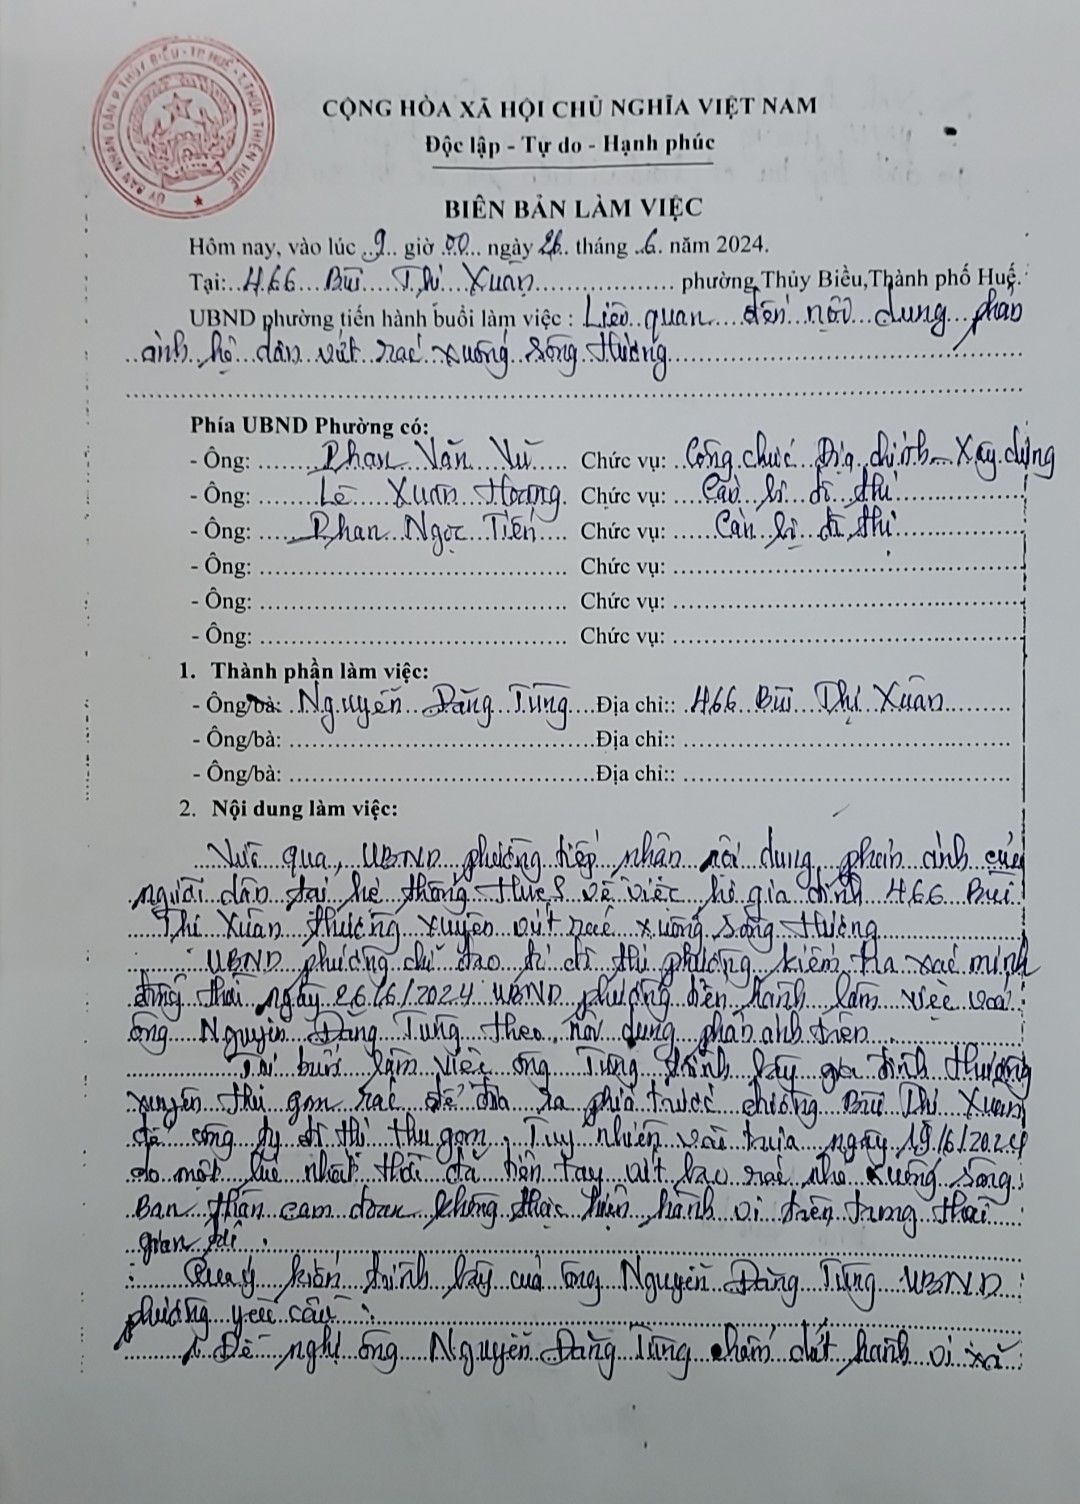 ỦY BAN NHÂN DÂN P. THỦY BIỀU - TP HUẾ - T. THỪA THIÊN HUẾ
CỘNG HÒA XÃ HỘI CHỦ NGHĨA VIỆT NAM
Độc lập - Tự do - Hạnh phúc
BIÊN BẢN LÀM VIỆC
Hôm nay, vào lúc 9 giờ 00 ngày 26 tháng 6 năm 2024.
Tại: 466 Bùi Thị Xuân phường Thủy Biều,Thành phố Huế.
UBND phường tiến hành buổi làm việc : Liên quan đến nội dung phản
ánh hộ dân vứt rác xuống sông Hương
Phía UBND Phường có:
- Ông: Phan Văn Vũ Chức vụ: Công chức Địa chính - Xây dựng
- Ông: Lê Xuân Hoàng Chức vụ: Cán bộ đô thị
- Ông: Phan Ngọc Tiến Chức vụ: Cán bộ đô thị
- Ông: Chức vụ:
- Ông: Chức vụ:
- Ông: Chức vụ:
1. Thành phần làm việc:
- Ông/bà: Nguyễn Đăng Tùng Địa chỉ:: 466 Bùi Thị Xuân
- Ông/bà: Địa chỉ::
- Ông/bà: Địa chỉ::
2. Nội dung làm việc:
Vừa qua, UBND phường tiếp nhận nội dung phản ánh của
người dân tại hệ thống HueS về việc hộ gia đình 466 Bùi
Thị Xuân thường xuyên vứt rác xuống sông Hương
UBND phường chỉ đạo đô thị phường kiểm tra xác minh
đồng thời ngày 26/6/2024 UBND phường tiến hành làm việc với
ông Nguyễn Đăng Tùng theo nội dung phản ánh trên
Tại buổi làm việc ông Tùng trình bày gia đình thường
xuyên thu gom rác để đưa ra phía trước đường Bùi Thị Xuân
để công ty đô thị thu gom, Tuy nhiên vào trưa ngày 19/6/2024
do một lúc nhất thời đã tiện tay vứt bao rác nhỏ xuống sông.
Bản thân cam đoan không thực hiện hành vi trên trong thời
gian
Qua ý kiến trình bày của ông Nguyễn Đăng Tùng UBND
phường yêu cầu :
1. Đề nghị ông Nguyễn Đăng Tùng chấm dứt hành vi xả